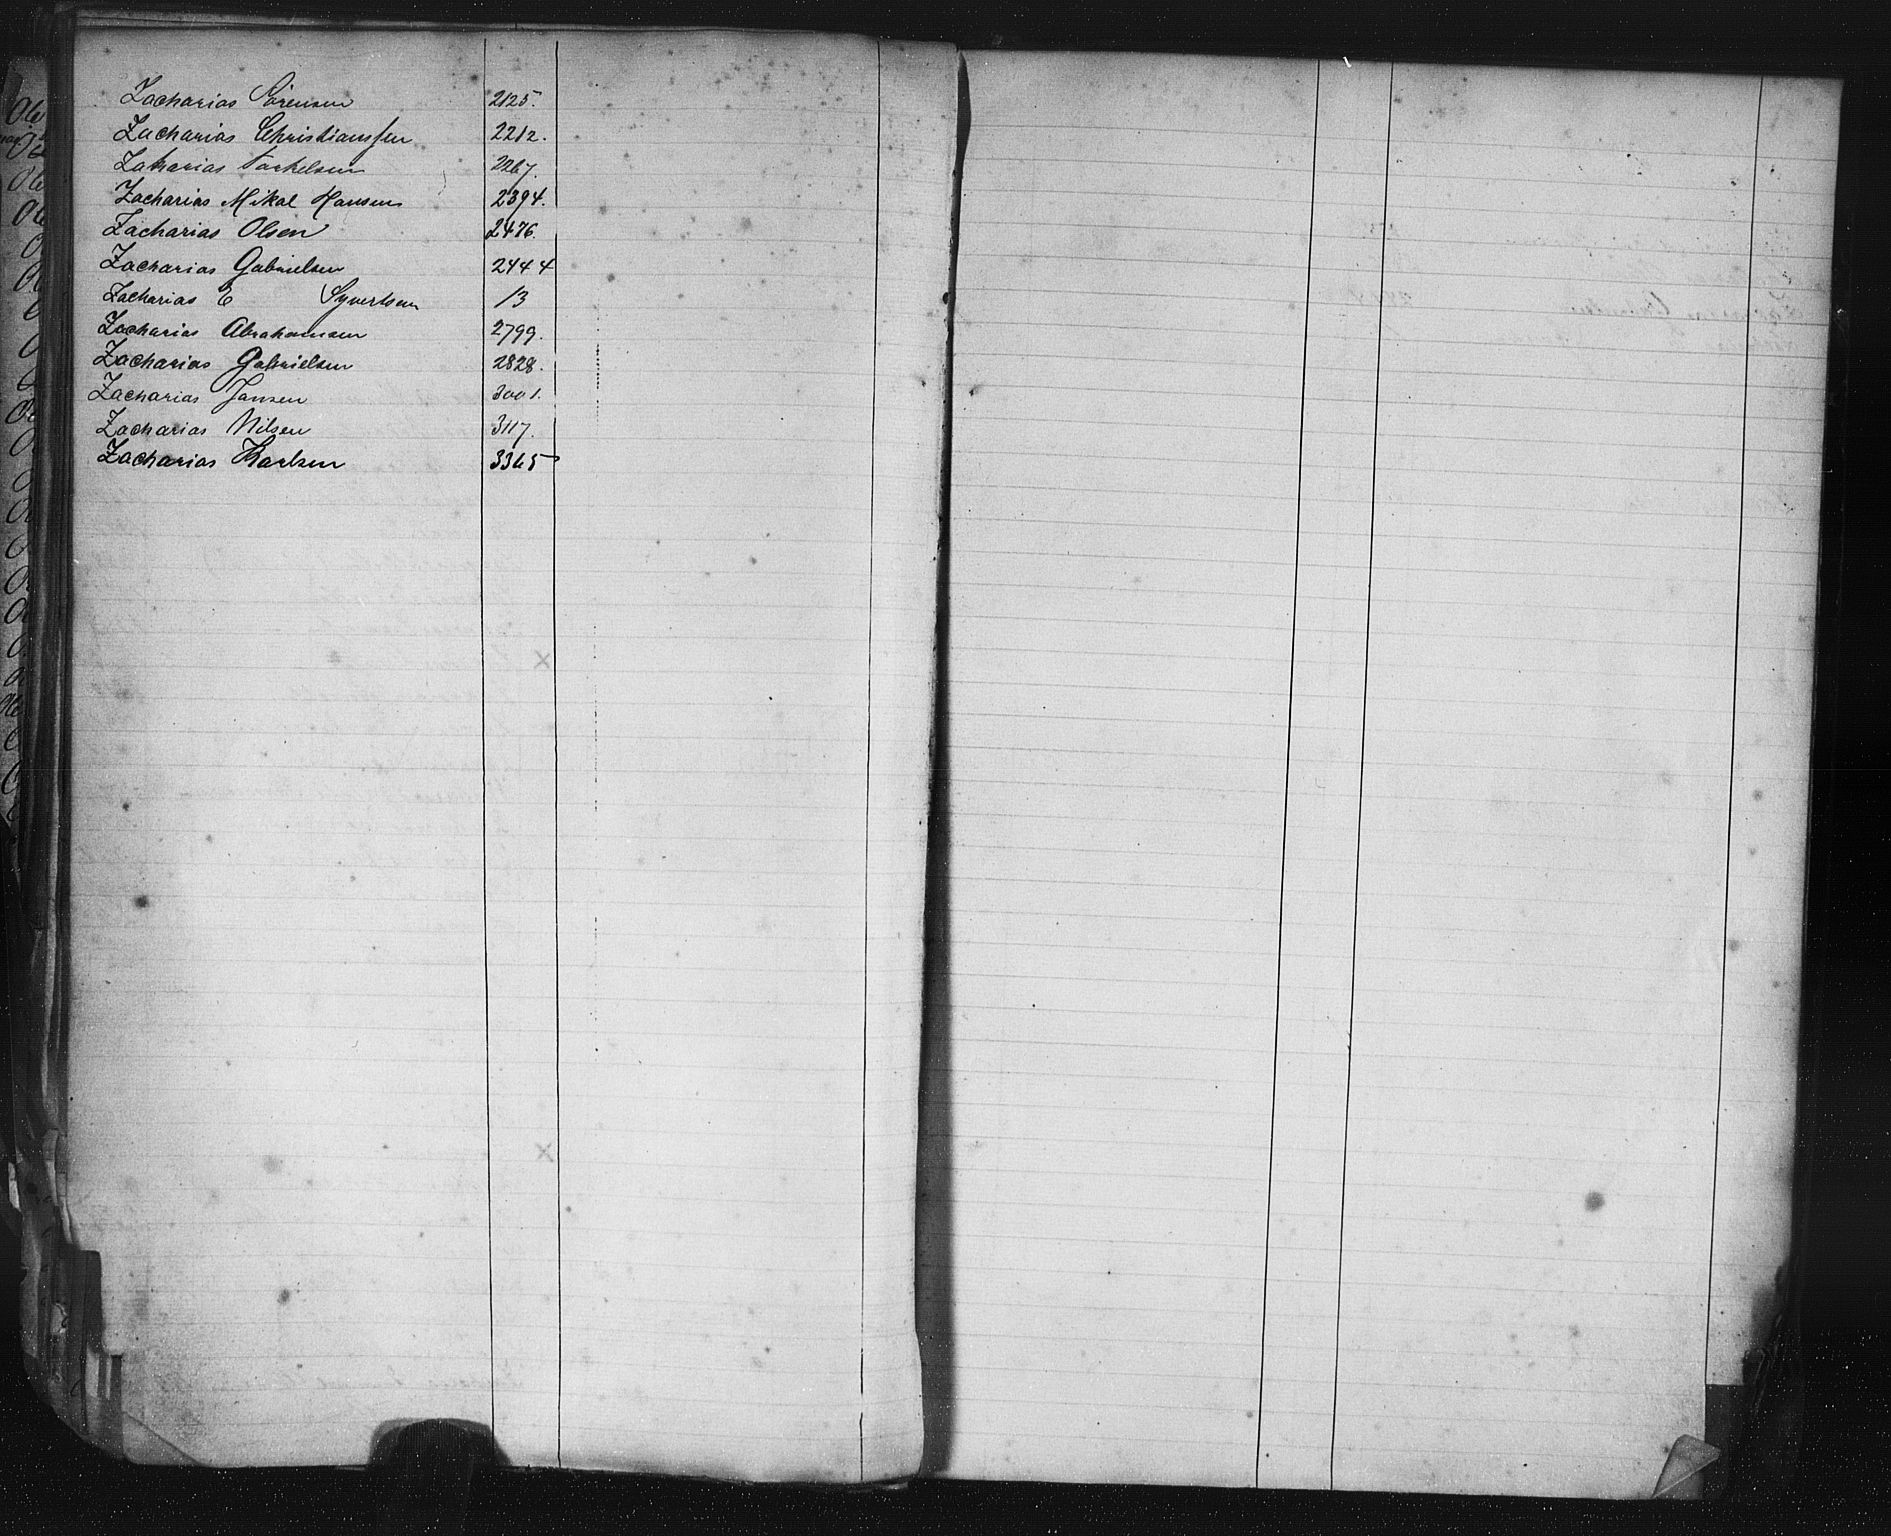 Zacharias Sörensen 2125.
Zacharias Christianssen 2212.
Zakarias Torkelsen 2267.
Zacharias Mikal Hansen 2394.
Zacharias Olsen 2476.
Zacharias Gabrielsen 2444
Zacharias E Syvertsen 13
Zacharias Abrahamsen 2799.
Zacharias Gabrielsen 2828.
Zacharias Jansen 3001.
Zacharias Nilsen 3117.
Zacharias Karlsen 3365